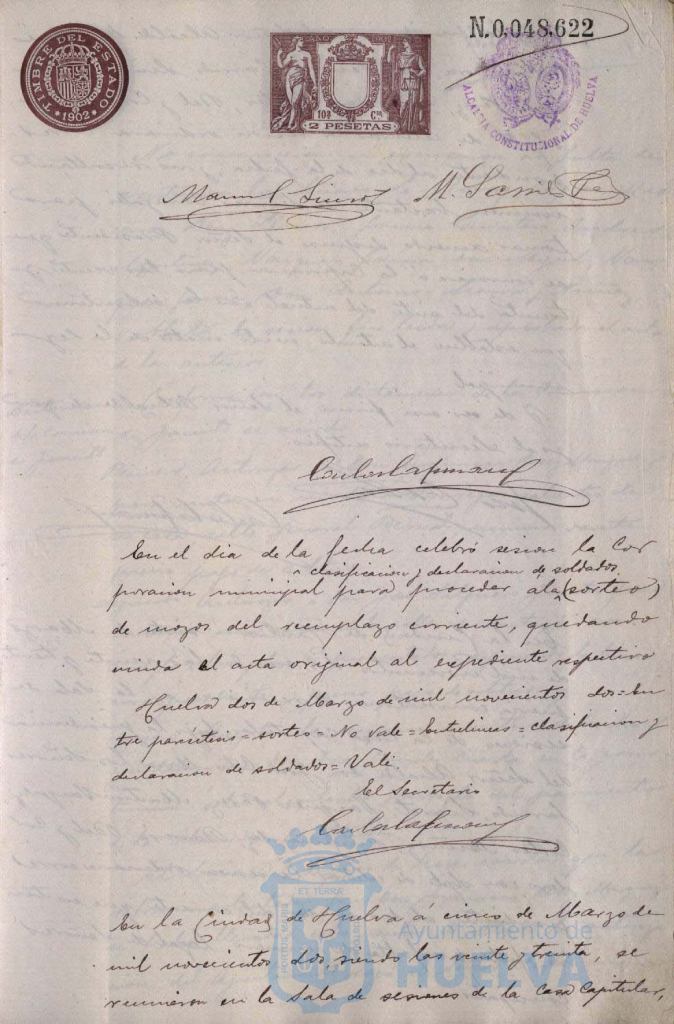 N.0.048,622
TIMBRE DEL ESTADO
1902
10ª Cª
2 PESETAS
ALCALDIA CONSTITUCIONAL DE HUELVA
Manuel
M.
En el dia de la fecha celebró sesion la Cor
clasificacion y declaracion de soldados
poracion municipal para proceder al a (sorteo)
de mozos del reemplazo corriente, quedando
unida el acta original al expediente respectivo
Huelva dos de Marzo de mil novecientos dos = En
tre paréntesis = sorteo = No vale = Entrelineas = clasificacion y
declaracion de soldados = Vale.
El Secretario
ET TERRA
En la Ciudad de Huelva á cinco de Marzo de
mil novecientos dos, siendo las veinte y treinta, se
reunieron en la Sala de sesiones de la casa Capitular,
Ayuntamiento de
HUELVA